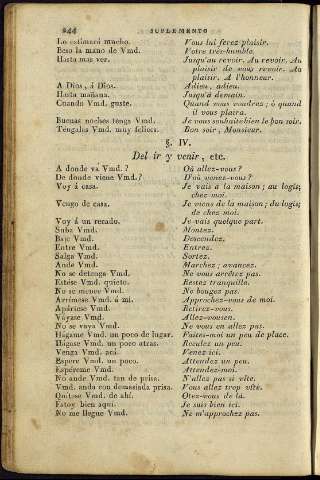 244 SUPLEMENTO
Lo estimaré mucho. Vous lui ferez plaisir.
Beso la mano de Vmd. Votre très-humble.
Hasta mas ver. Jusqu'au revoir. Au revoir. Au
plaisir de vous revoir. Au
plaisir. A l'honneur.
A Dios, á Dios. Adieu, adieu.
Hasta mañana. Jusqu'à demain.
Cuando Vmd. guste. Quand vous voudrez; ó quand
il vous plaira.
Buenas noches tenga Vmd. Je vous souhaite bien le bon soir.
Téngalas Vmd. muy felices. Bon soir, Monsieur.
§. IV.
Del ir y venir, etc.
A donde va Vmd.? Où allez-vous?
De donde viene Vmd.? D'où venez-vous?
Voy á casa. Je vais à la maison; au logis;
chez moi.
Vengo de casa. Je viens de la maison; du logis;
de chez moi.
Voy á un recado. Je vais quelque part.
Suba Vmd. Montez.
Baje Vmd. Descendez.
Entre Vmd. Entrez.
Salga Vmd. Sortez.
Ande Vmd. Marchez; avancez.
No se detenga Vmd. Ne vous arrêtez pas.
Estése Vmd. quieto. Restez tranquille.
No se menee Vmd. Ne bougez pas.
Arrímese Vmd. á mi. Approchez-vous de moi.
Apártese Vmd. Retirez-vous.
Váyase Vmd. Allez-vous-en.
No se vaya Vmd. Ne vous en allez pas.
Hágame Vmd. un poco de lugar. Faites-moi un peu de place.
Hágase Vmd. un poco atras. Reculez un peu.
Venga Vmd. acá. Venez ici.
Espere Vmd. un poco. Attendez un peu.
Espéreme Vmd. Attendez-moi.
No ande Vmd. tan de prisa. N'allez pas si vîte.
Vmd. anda con demasiada prisa. Vous allez trop vîte.
Quítese Vmd. de ahí. Otez-vous de là.
Estoy bien aquí. Je suis bien ici.
No me llegue Vmd. Ne m'approchez pas.